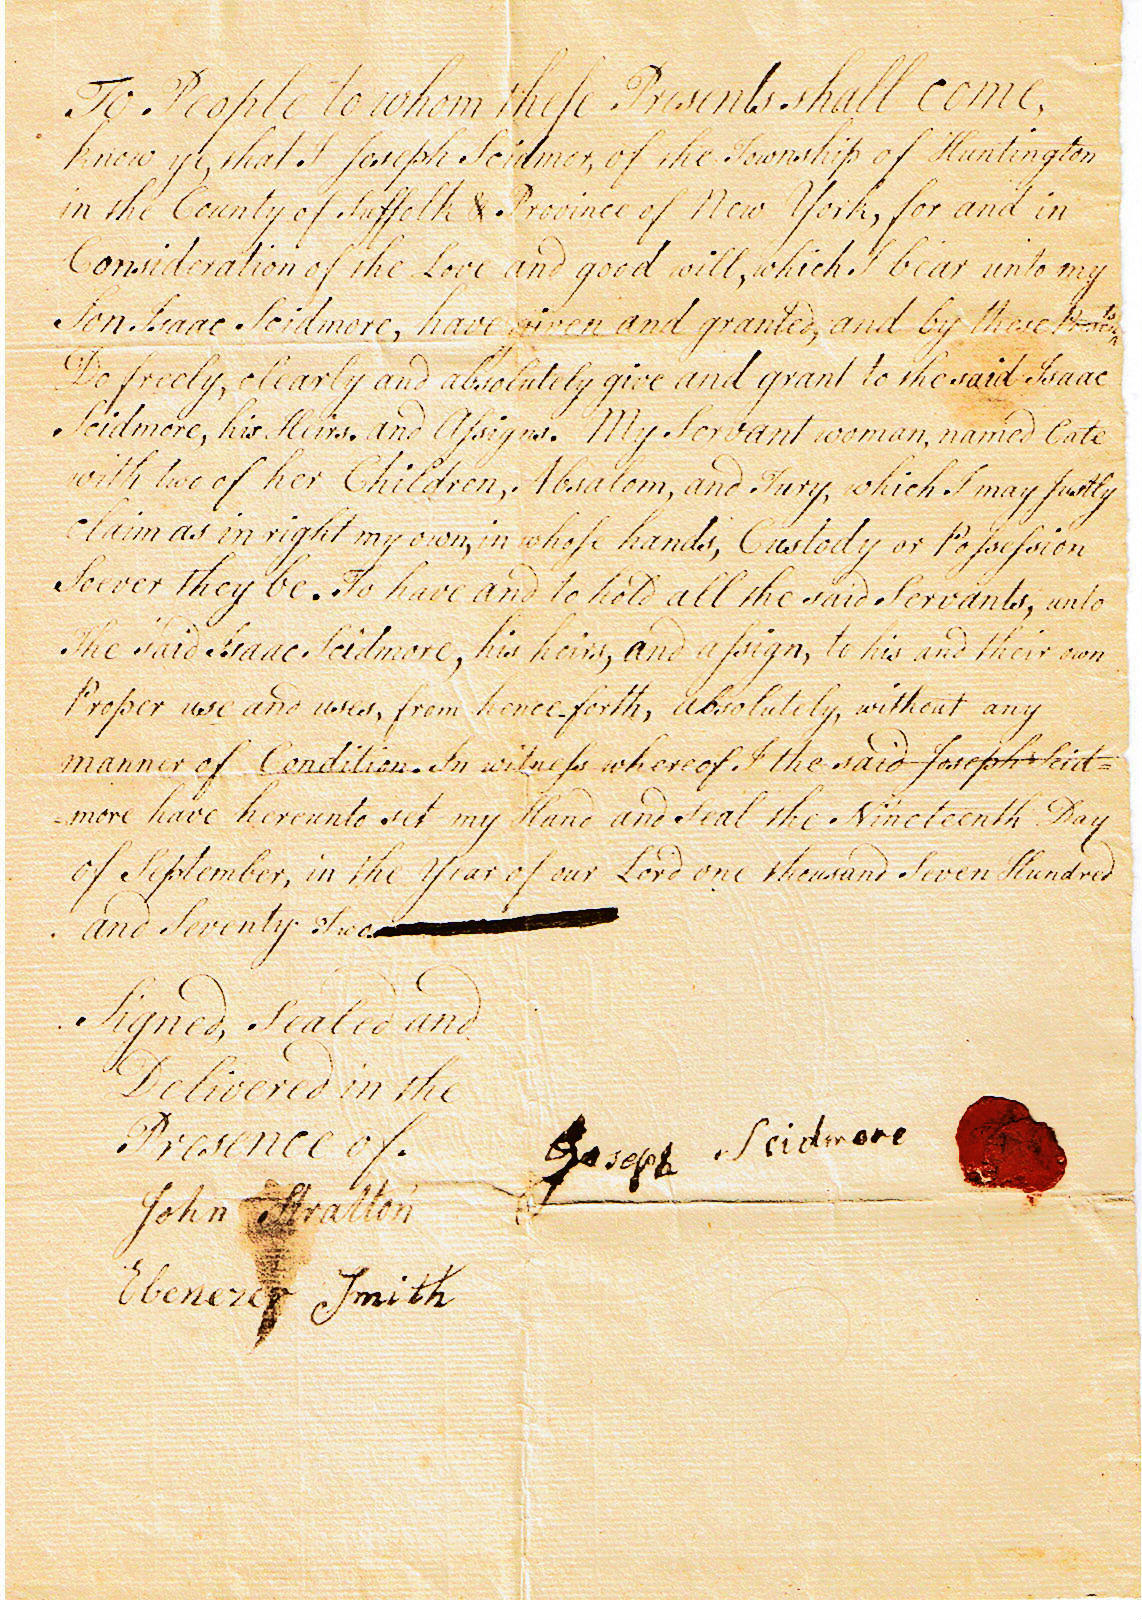 To People to whom these Presents shall come,
know ye, that I Joseph Scidmor, of the Township of Huntington
in the County of Suffolk & Province of New York, for and in
Consideration of the Love and good will, which I bear unto my
Son Isaac Scidmore, have given and granted, and by these
Do freely, clearly and absolutely give and grant to the said Isaac
Scidmore, his Heirs. and Assigns. My Servant woman, named Cate
with two of her Children, Absalom, and Jury, which I may justly
claim as in right my own, in whose hands, Custody or Possession
Soever they be. To have and to hold all the said Servants, unto
The said Isaac Scidmore, his heirs, and assign, to his and their own
Proper use and uses, from hence-forth, absolutely, without any
manner of Condition. In witness whereof I the said Joseph Scid=
=more have hereunto set my Hand and Seal the Nineteenth Day
of September, in the Year of our Lord one thousand Seven Hundred
and Seventy Two
Signed, Sealed and
Delivered in the
Presence of.
Joseph Scidmore
John Stratton
Ebenezer Smith